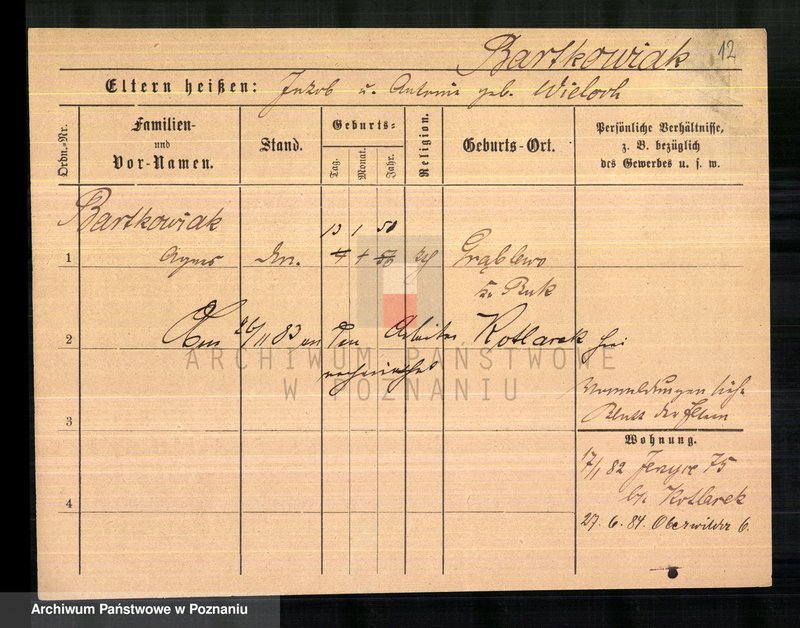 Bartkowiak 12
Eltern heißen: Jakob u. Antonie geb. Wieloch
Ordn.-Nr.
Familien- und Vor-Namen.
Stand.
Geburts-
Tag.
Monat.
Jahr.
Religion.
Geburts-Ort.
Persönliche Verhältnisse,
z. B. bezüglich
des Gewerbes u. s. w.
Bartkowiak
13 1 50
1 Agnes 4 4 50 Grąblewo
Buk
2 26/11 83 an den Arbeiter Kotlarek
verheirathet
Vormeldungen siehe
3 Blatt der Eltern
Wohnung.
17/1 82 Jerzyce 75
4 bei Kotlarek
27. 6. 84. Oberwilda 6.
ARCHIWUM PAŃSTWOWE
W POZNANIU
Archiwum Państwowe w Poznaniu